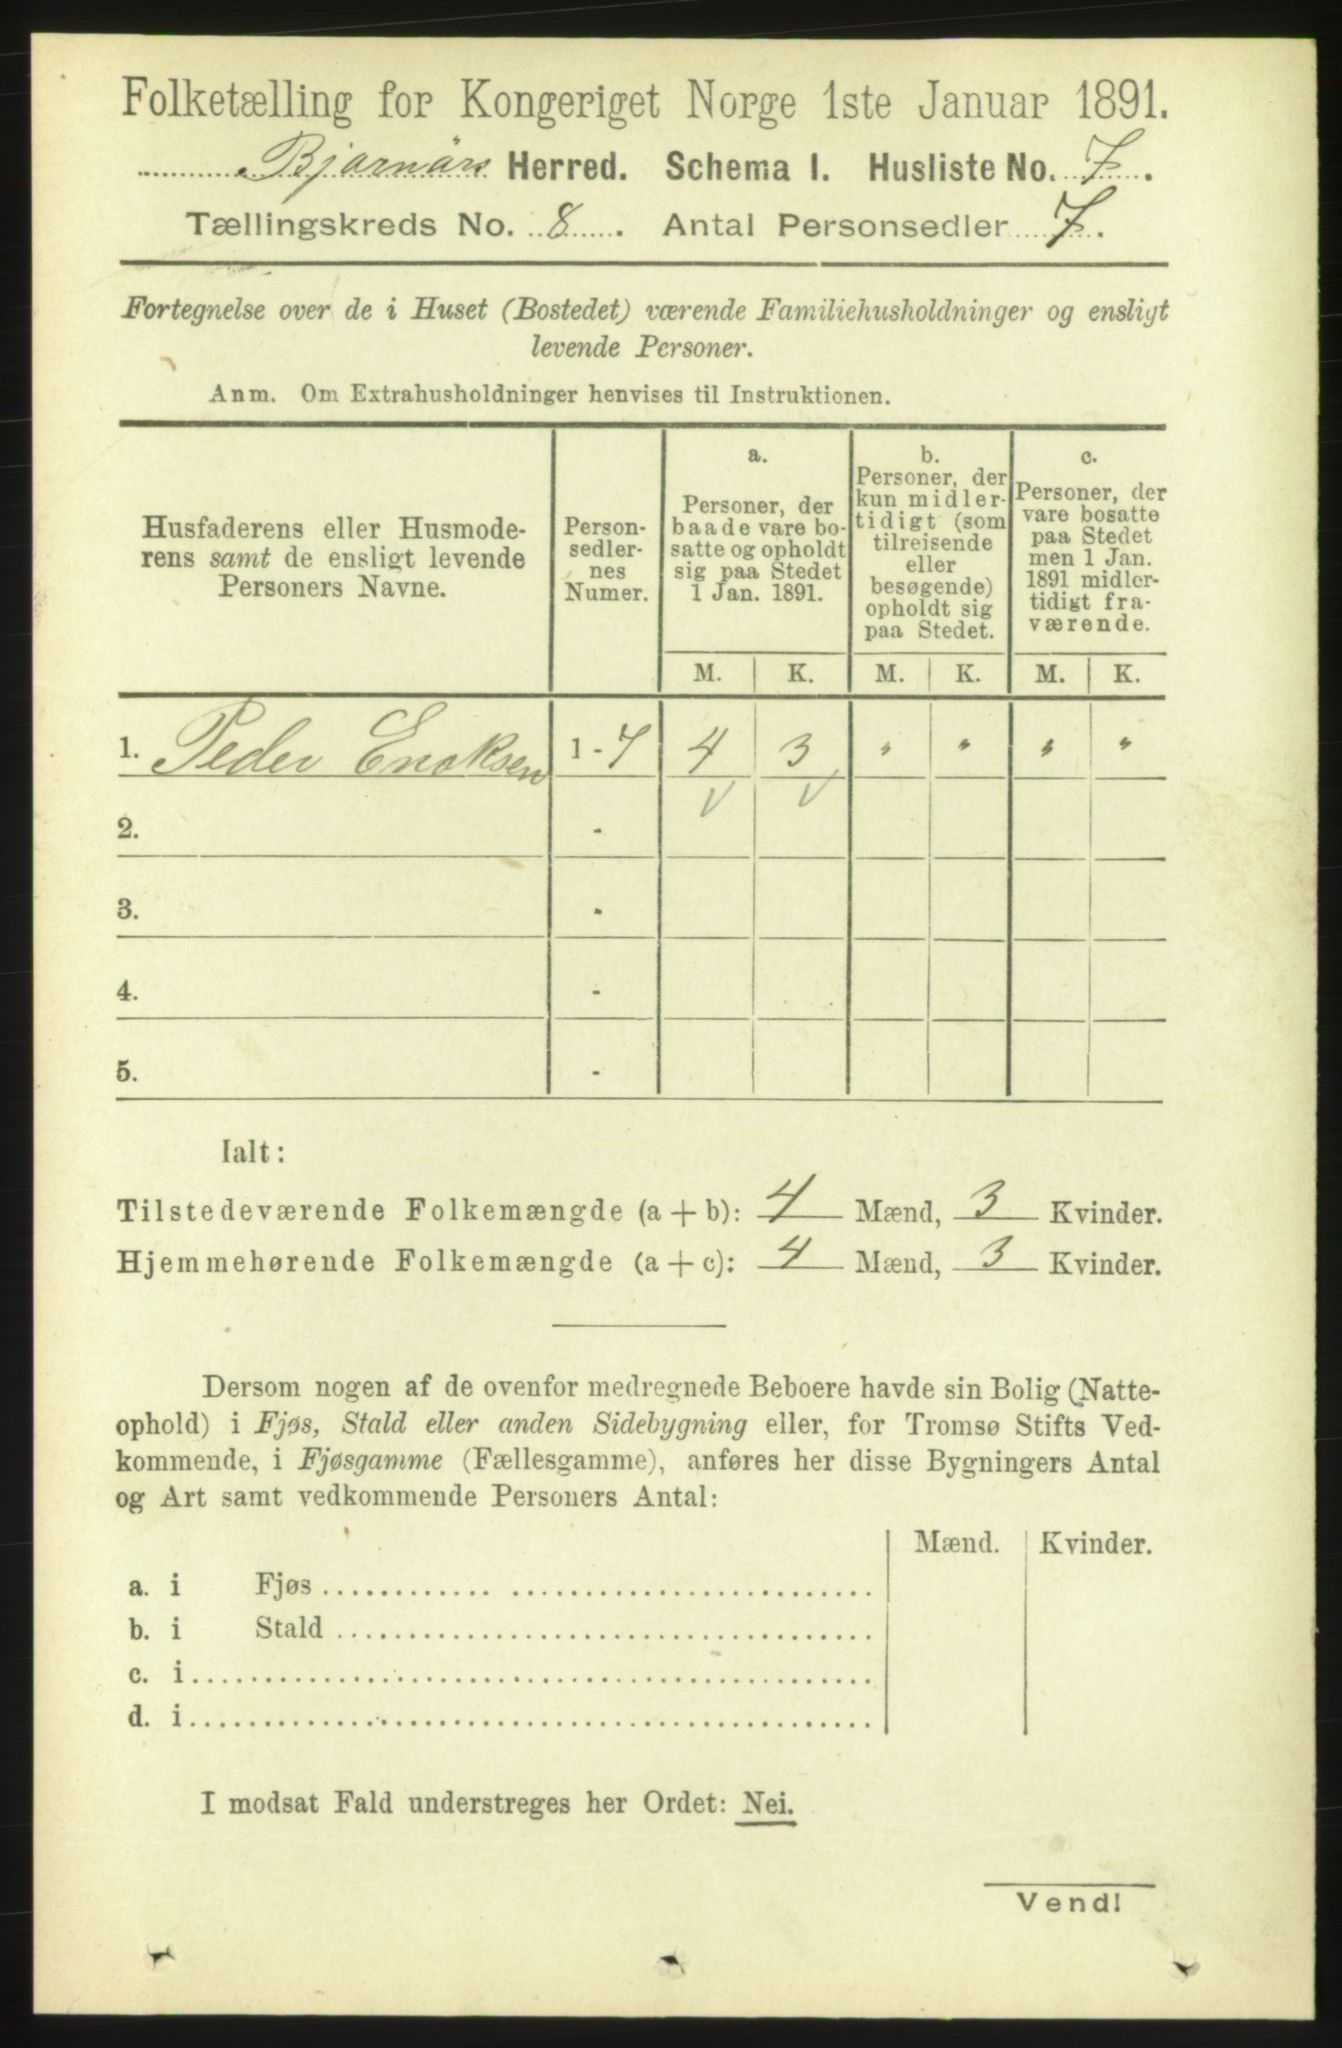 Folketælling for Kongeriget Norge 1ste Januar 1891.
Bjarnørs Herred. Schema I. Husliste No. 7.
Tællingskreds No. 8. Antal Personsedler 7.
Fortegnelse over de i Huset (Bostedet) værende Familiehusholdninger og ensligt
levende Personer.
Anm. Om Extrahusholdninger henvises til Instruktionen.
Husfaderens eller Husmode-
rens samt de ensligt levende
Personers Navne.
Person-
sedler-
nes
Numer.
a.
Personer, der
baade vare bo-
satte og opholdt
sig paa Stedet
1 Jan. 1891.
b.
Personer, der
kun midler-
tidigt (som
tilreisende
eller
besøgende)
opholdt sig
paa Stedet.
c.
Personer, der
vare bosatte
paa Stedet
men 1 Jan.
1891 midler-
tidigt fra-
værende.
M. K. M. K. M. K.
1. Peder Enoksen 1 - 7 4 3 " " " "
2. -
3. -
4. -
5. -
Ialt:
Tilstedeværende Folkemængde (a + b): 4 Mænd, 3 Kvinder.
Hjemmehørende Folkemængde (a + c): 4 Mænd, 3 Kvinder.
Dersom nogen af de ovenfor medregnede Beboere havde sin Bolig (Natte-
ophold) i Fjøs, Stald eller anden Sidebygning eller, for Tromsø Stifts Ved-
kommende, i Fjøsgamme (Fællesgamme), anføres her disse Bygningers Antal
og Art samt vedkommende Personers Antal:
Mænd. Kvinder.
a. i Fjøs
b. i Stald
c. i
d. i
I modsat Fald understreges her Ordet: Nei.
Vend!